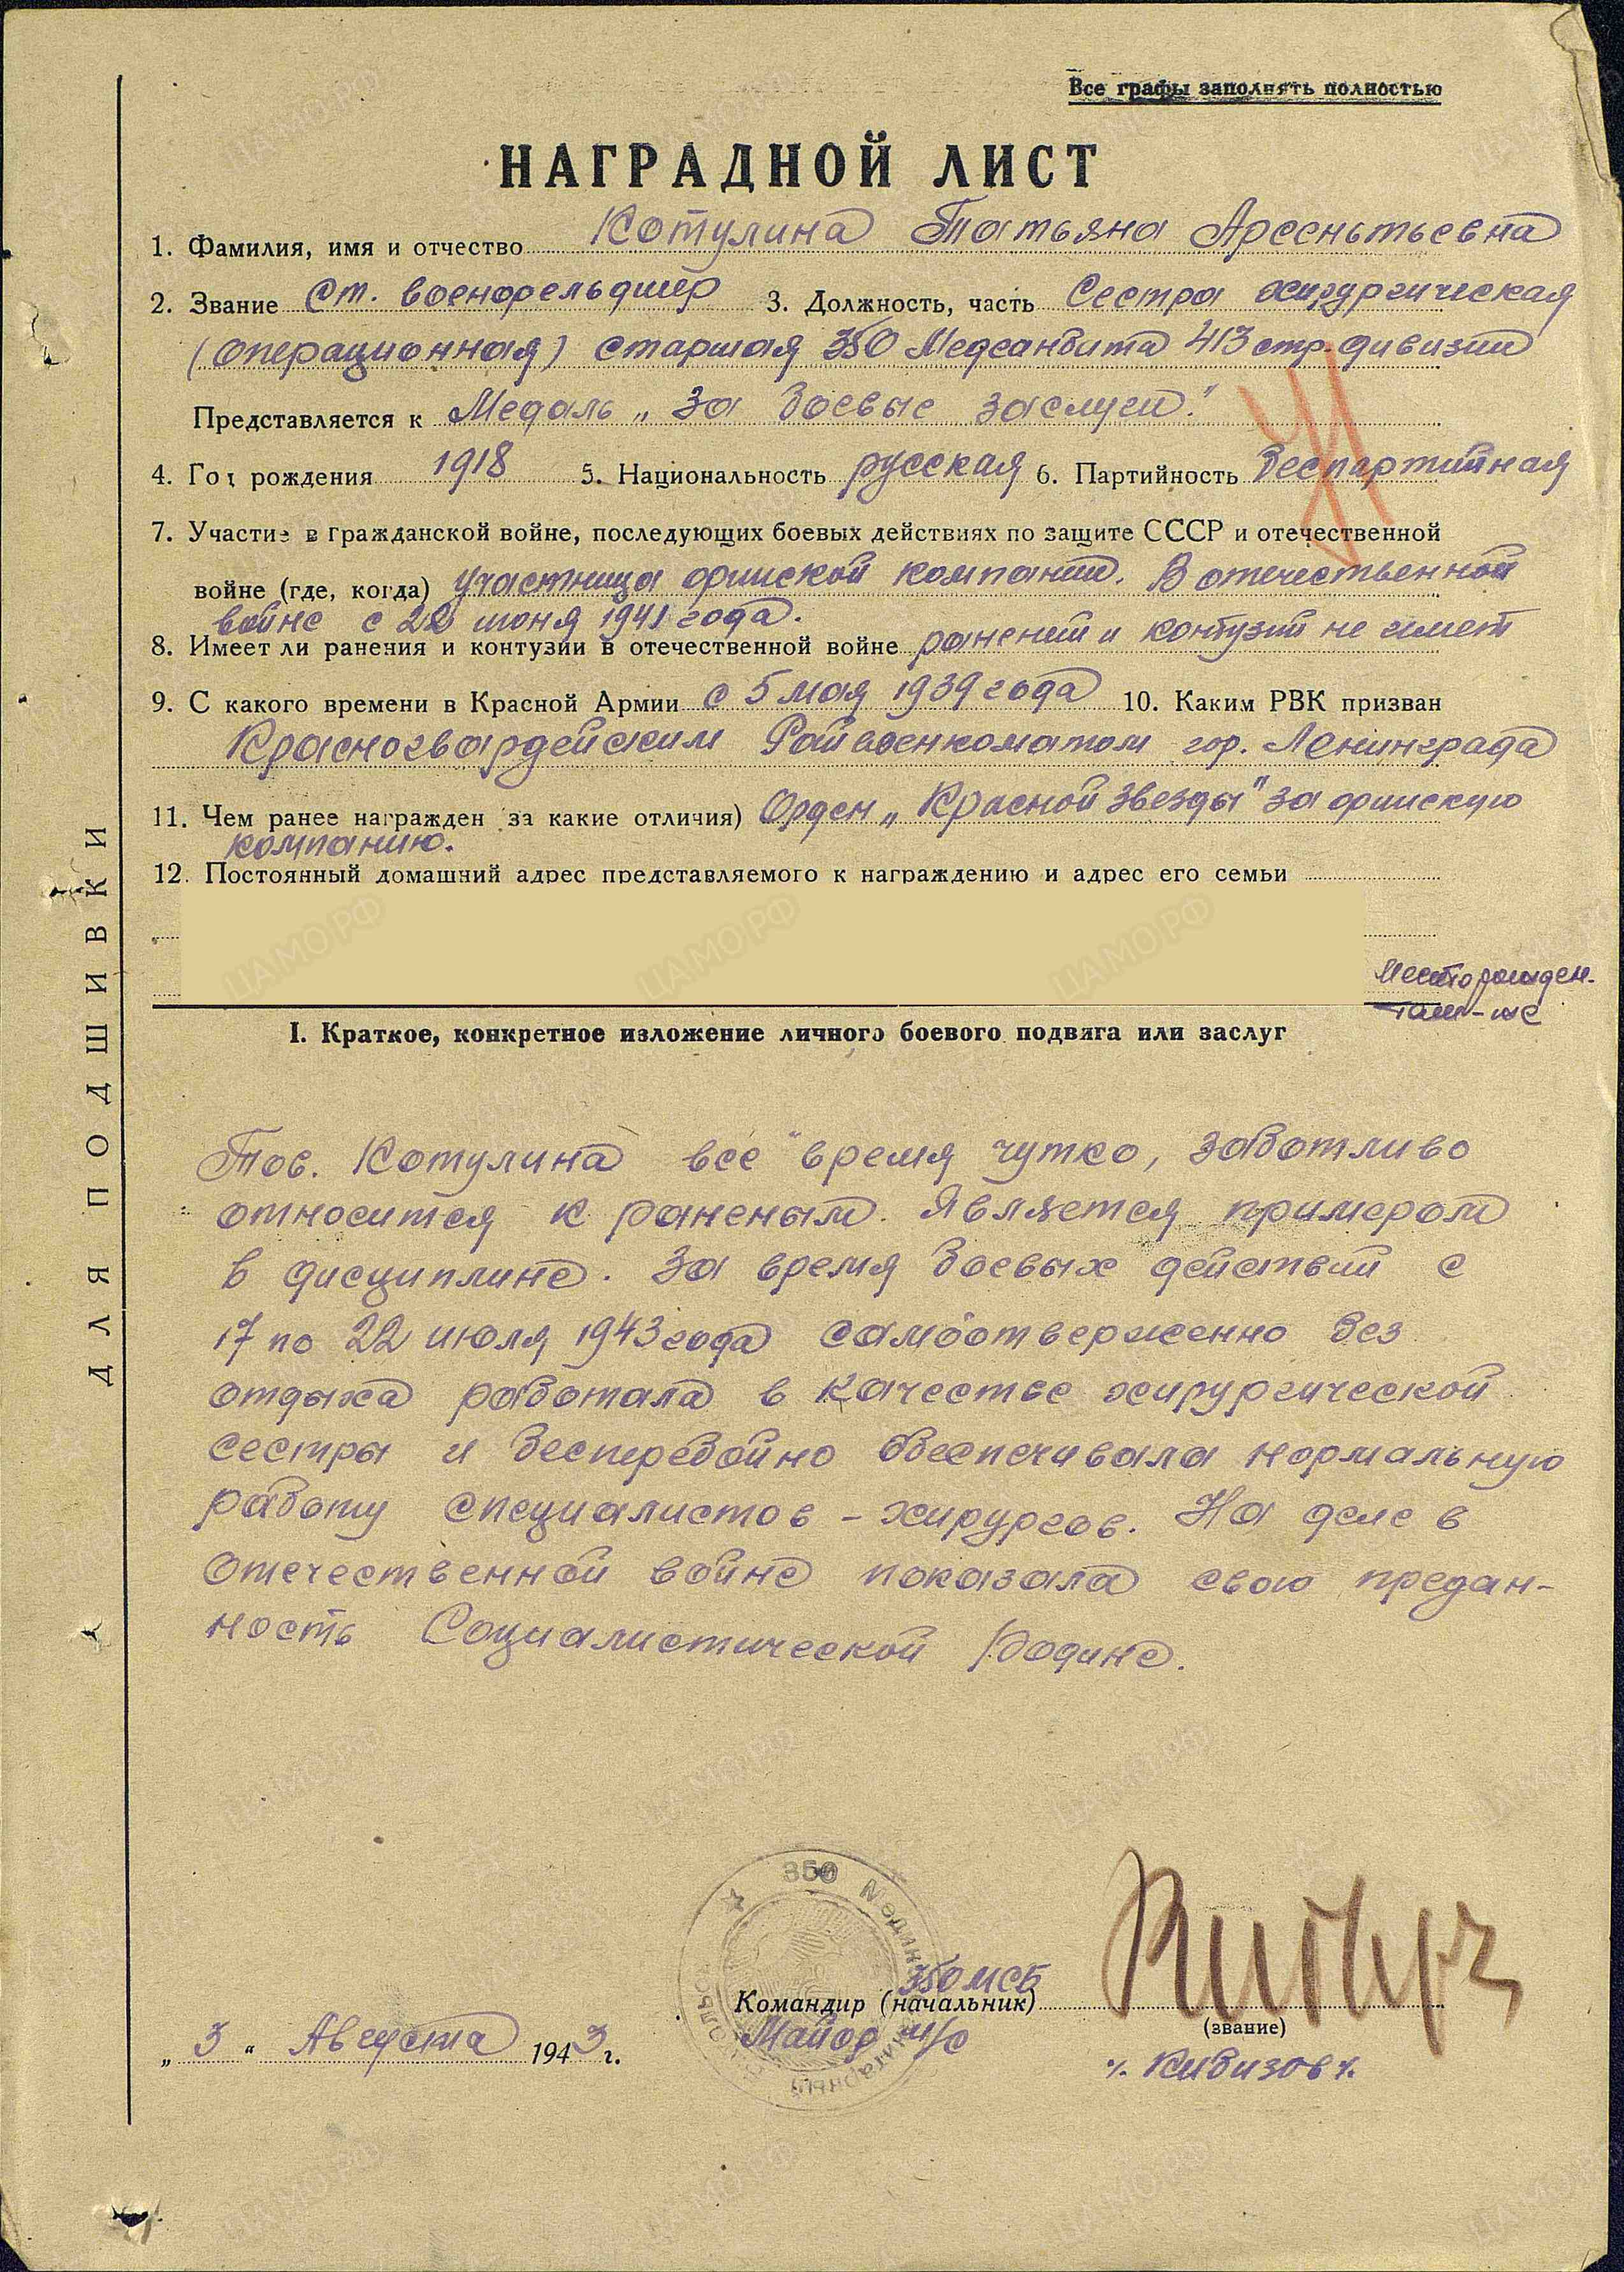 Все графы заполнять полностью
НАГРАДНОЙ ЛИСТ
1. Фамилия, имя и отчество Котулина Татьяна Арсентьевна
2. Звание Ст. военфельдшер 3. Должность, часть Сестра хирургическая
(операционная) старшая 350 Медсанбата 413 стр. дивизии
Представляется к Медаль „За боевые заслуги."
4. Год рождения 1918 5. Национальность русская 6. Партийность беспартийная
7. Участие в гражданской войне, последующих боевых действиях по защите СССР и отечественной
войне (где, когда) участница финской компании. В отечественной
войне с 22 июня 1941 года.
8. Имеет ли ранения и контузии в отечественной войне ранений и контузий не имеет
9. С какого времени в Красной Армии с 5 мая 1939 года 10. Каким РВК призван
Красногвардейским Райвоенкоматом гор. Ленинграда
11. Чем ранее награжден за какие отличия) Орден „Красной Звезды" за финскую
компанию.
12. Постоянный домашний адрес представляемого к награждению и адрес его семьи
Место рожден.
там-же
I. Краткое, конкретное изложение личного боевого подвига или заслуг
Тов. Котулина все время чутко, заботливо
относится к раненым. Является примером
в дисциплине. За время боевых действий с
17 по 22 июля 1943 года самоотверженно без
отдыха работала в качестве хирургической
сестры и бесперебойно обеспечивала нормальную
работу специалистов - хирургов. На деле в
отечественной войне показала свою предан-
ность Социалистической Родине.
350 МСБ
Командир (начальник)
(звание)
Майор м/с
/. Кивизов /.
„ 3 " Августа 1943 г.
ДЛЯ ПОДШИВКИ
ЦАМО.РФ